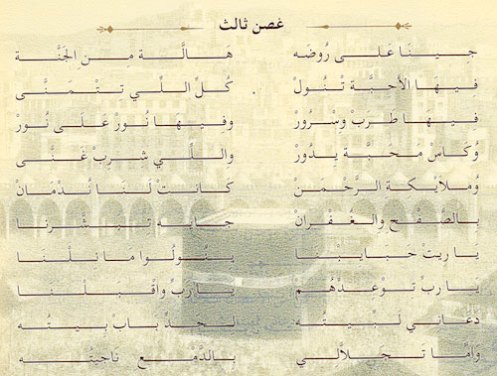 غصن ثالث
جينا على رُوضه هالة من الجَنَّة
فيها الأحبَّة تْنُولْ كُلِّ اللِّي تتْمَنَّى
فِيها طَرَبْ وسْرُورْ وفِيها نُورْ عَلَى نُورْ
وُكَاسْ مَحَبَّة يدُورْ واللِّي شرِبْ غَنَّى
وُملايكة الرَّحْمنْ كانتْ لنا نُدْمانْ
بالصَّفْحِ والغُفْرانْ جايه تبشَّرنا
يا ريتْ حبايبنا ينُولُوا ما نِلْنا
يا ربِّ توْعدْهُم يا ربِّ واقْبلْنا
دعاني لَبِّيته لحدِّ بابْ بيته
وامَّا تجلَّالي بالدَّمْع ناجيتُه